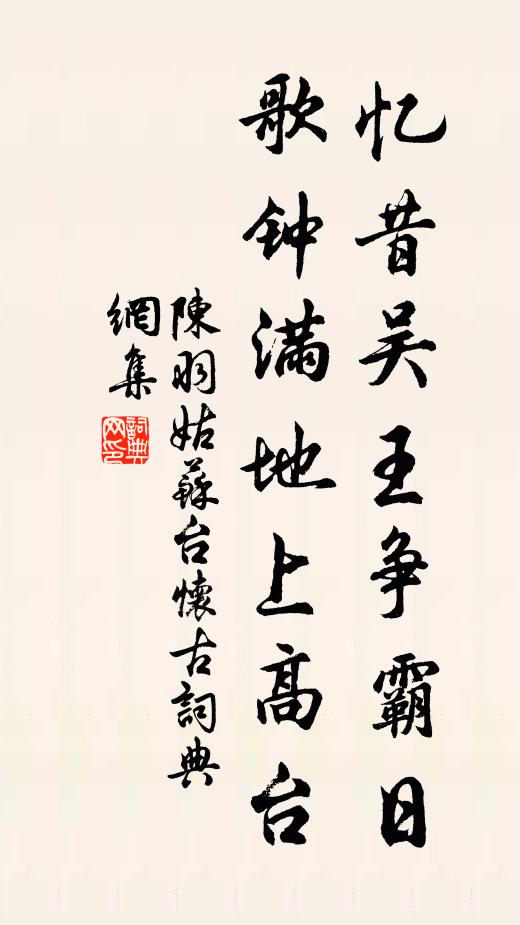 忆昔吴王争霸日
歌钟满地上高台
陳羽姑蘇台懷古詞典
網集
詞典
网印